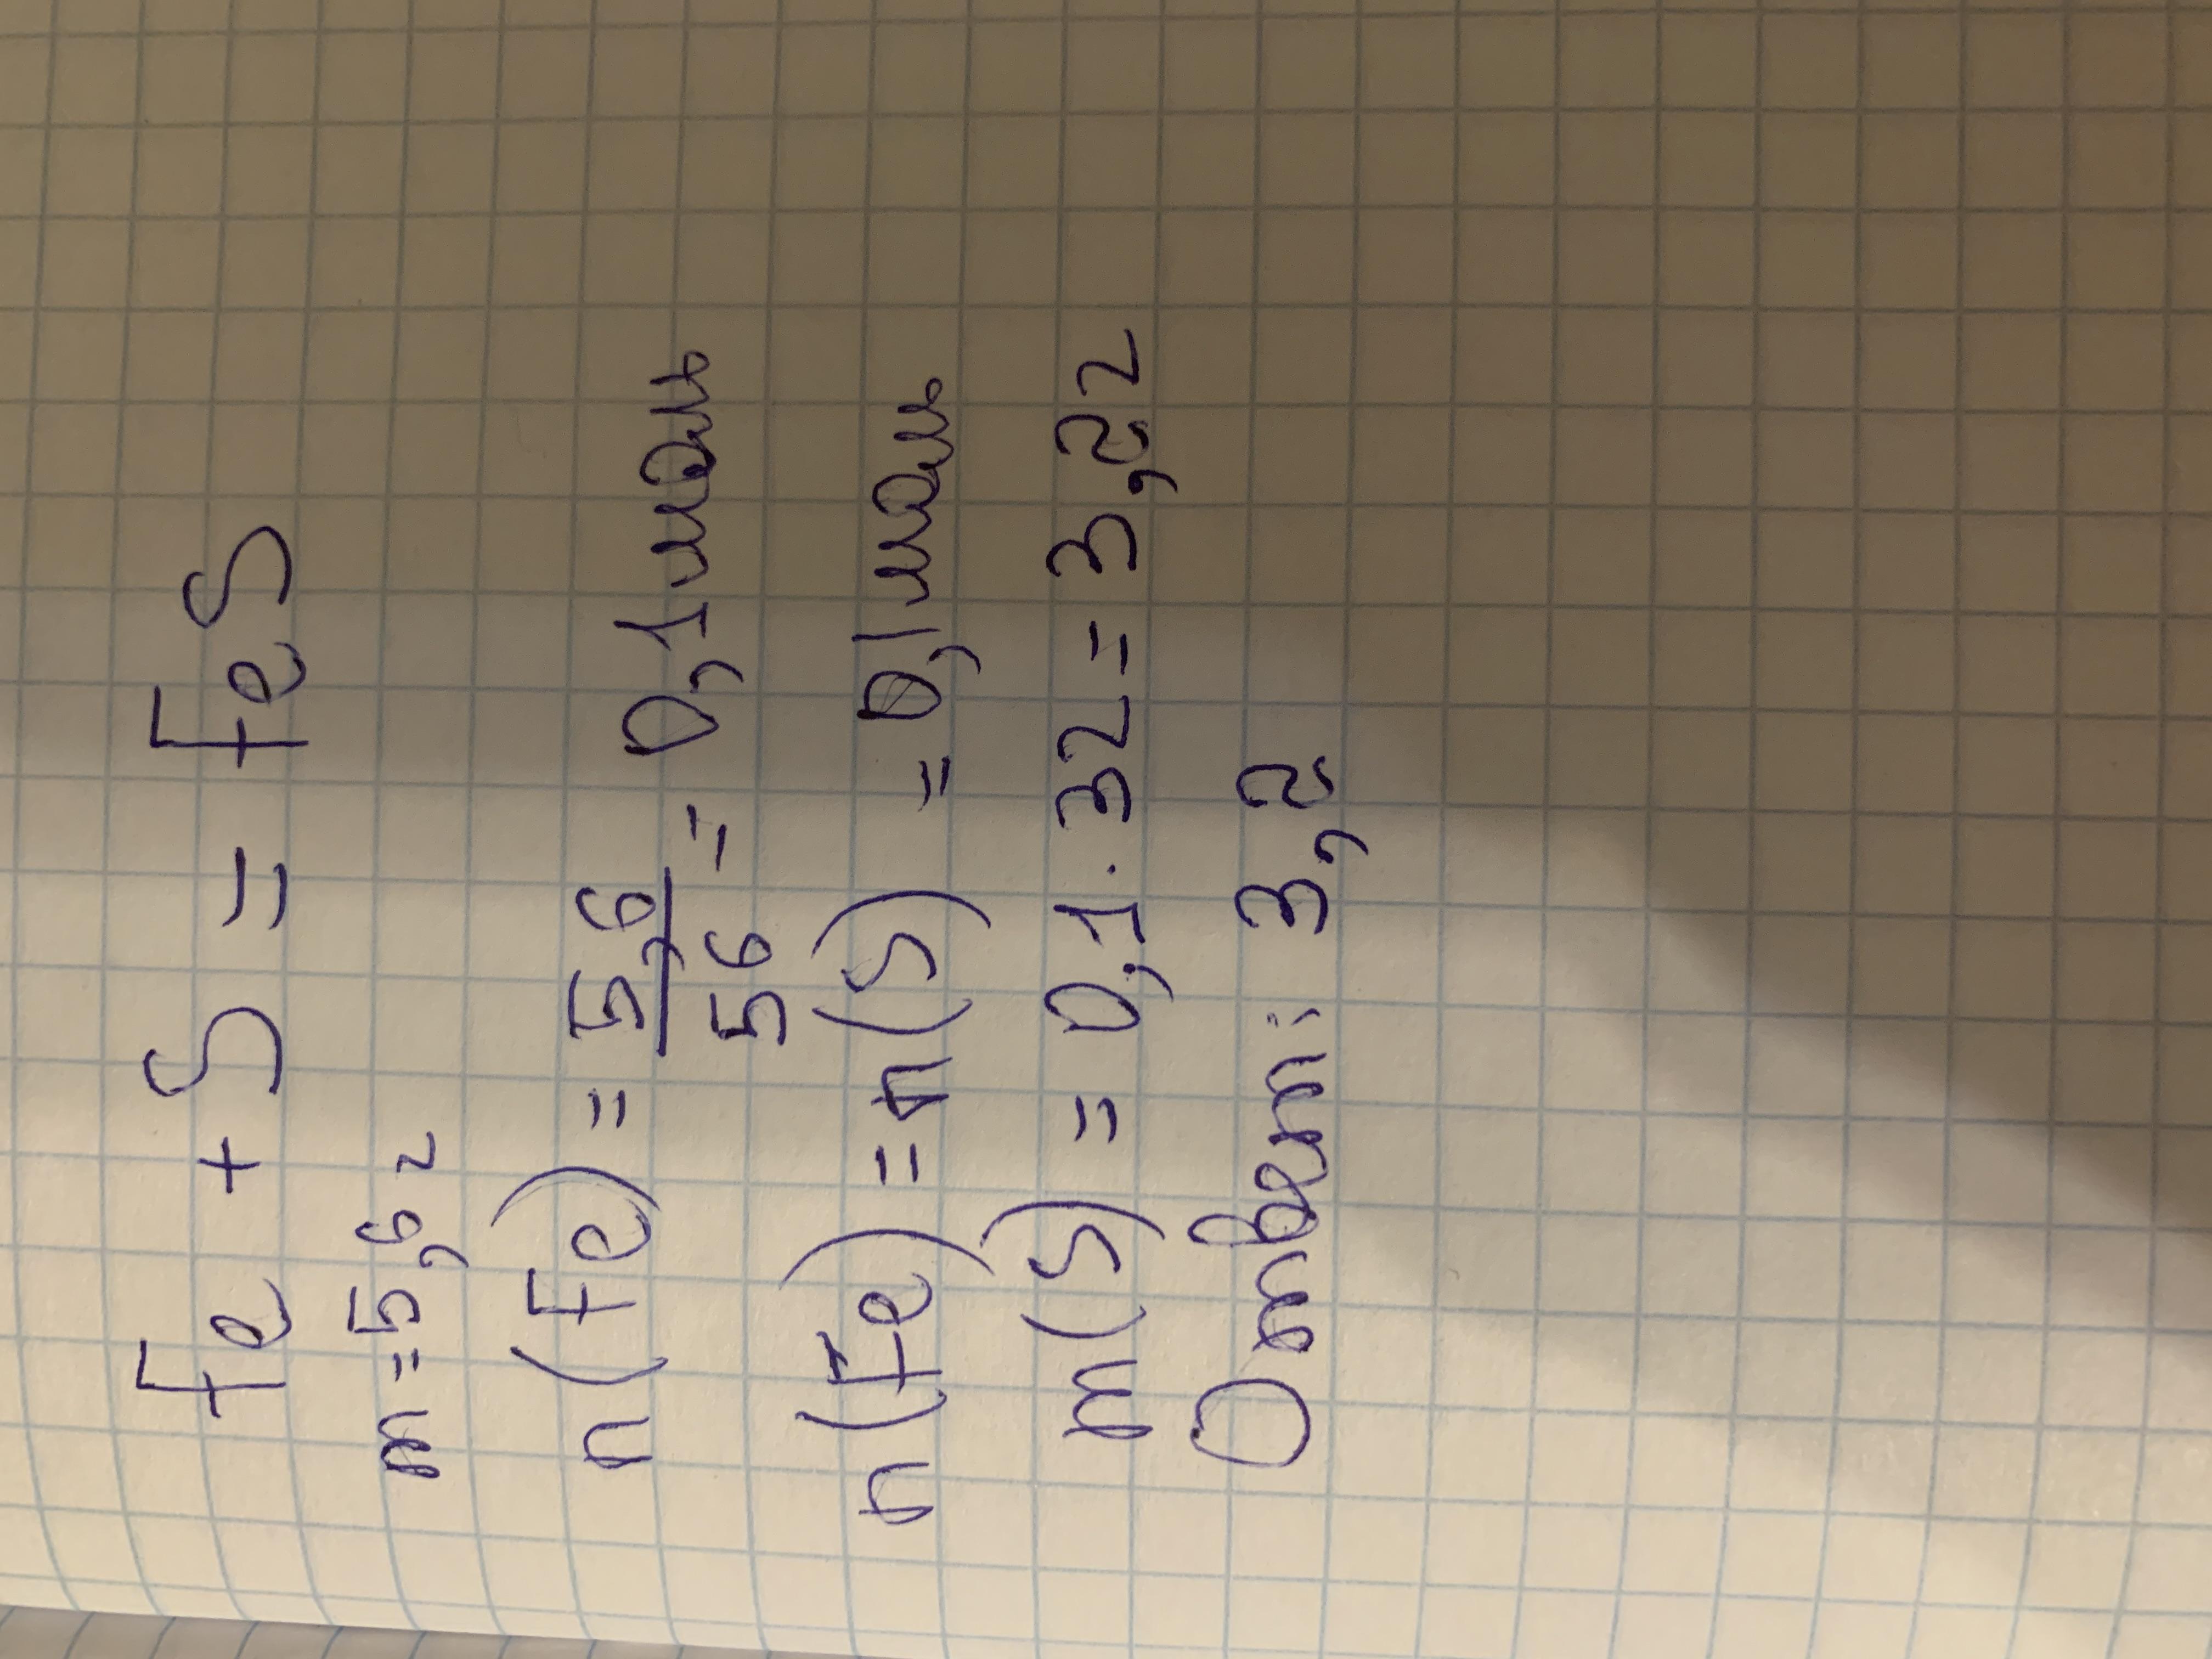 Fe + S = FeS
m = 5,6 г
n(Fe) = 5,6/56 = 0,1 моль
n(Fe) = n(S) = 0,1 моль
m(S) = 0,1 · 32 = 3,2 г
Ответ: 3,2